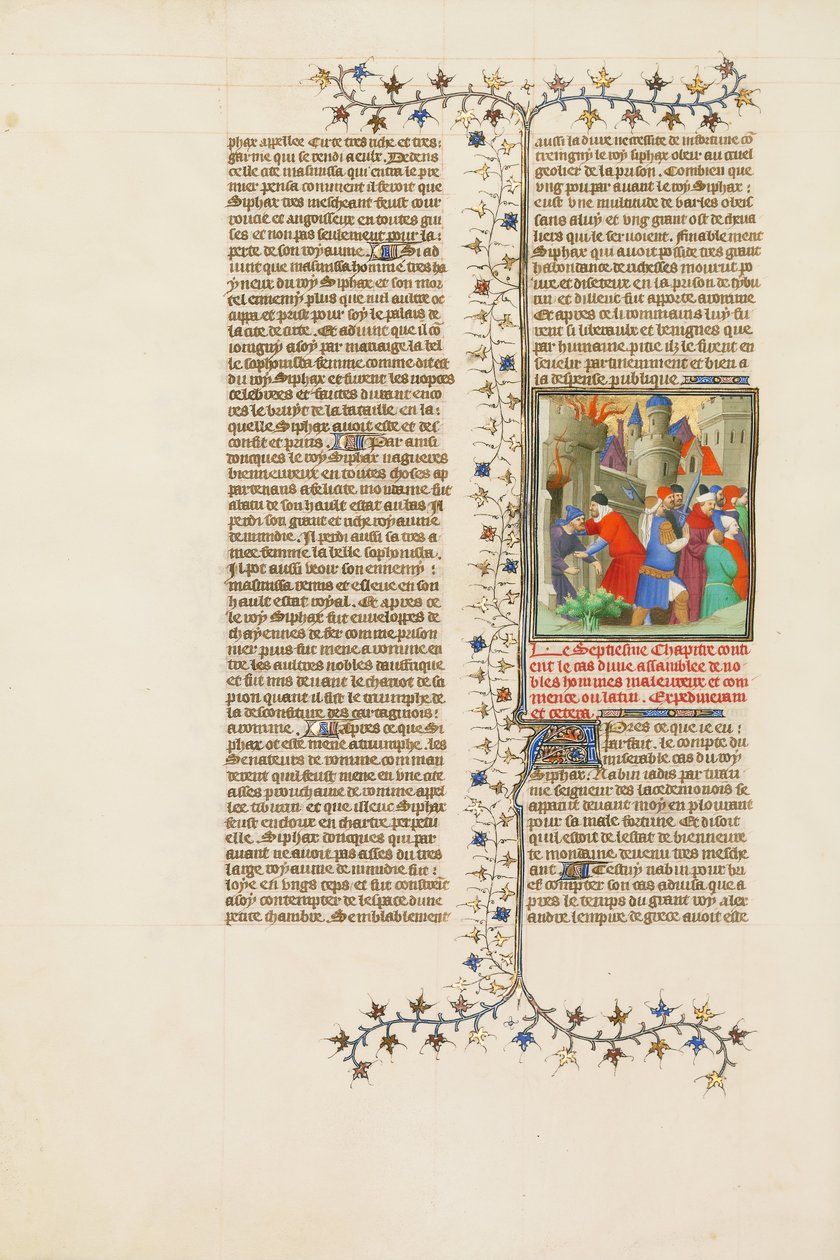 phax appellee Cirte tres riche et tres
garnie qui se rendi a eulx. Dedens
celle cite masinissa qui entra le pre
mier pensa comment il feroit que
Siphax tres mescheant feust cour
roucie et angoisseux en toutes gui
ses et non pas seulement pour la
perte de son royaume. Si ad
uint que masinissa homme tres ha
yneux du roy Siphax et son mor
tel ennemy plus que nul aultre oc
cupa et prist pour soy le palais de
la cite de cirte. Et aduint que il co
ioingny a soy par mariaige la bel
le sophonisba femme comme dit est
du roy Siphax et furent les nopces
celebrees et faictes durant enco
res le bruyt de la bataille en la
quelle Siphax auoit este et des
confit et prins. Par ainsi
doncques le roy Siphax nagueres
bieneureux en toutes choses ap
partenans a felicite mondaine fut
abatu de son hault estat au bas Il
perdi son grant et riche royaume
de numidie. Il perdi aussi sa tres a
mee femme la belle sophonisba.
Il pot aussi veoir son ennemy
masinissa remis et esleue en son
hault estat royal. Et apres ce
le roy Siphax fut enueloppes de
chayennes de fer comme prison
nier puis fut mene a romme en
tre les aultres nobles dauffrique
et fut mis deuant le chariot de sci
pion quant il fist le triumphe de
la desconfiture des cartaginois
a romme. Apres ce que Si
phax ot este mene a triumphe. les
Senateurs de romme comman
derent quil feust mene en vne cite
asses prouchaine de romme appel
lee tiburtin et que illeuc Siphax
feust encloux en chartre perpetu
elle. Siphax doncques qui par
auant ne auoit pas asses du tres
large royaume de numidie fut
loye en vngs ceps et fut constraint
a soy contempter de lespace dune
petite chambre. Semblablement
aussi la dure necessite de infortune co
treingny le roy siphax obeir au cruel
geolier de la prison. Combien que
vng pou par auant le roy Siphax
eust vne multitude de varles obeis
sans a luy et vng grant ost de cheua
liers qui le seruoient. finablement
Siphax qui auoit posside tres grant
habondance de richesses mourut po
ure et diseteux en la prison de tybu
tin et dillenc fut apporte a romme
Et apres ce li rommains luy fu
rent si liberaulx et benignes que
par humaine pitie ilz le firent en
seuelir partinemment et bien a
la despense publique
Le Septiesme Chapitre conti
ent le cas dune assamblee de no
bles hommes maleureux et com
mence ou latin. Expediueram
et cetera.
Apres ce que ie eu
parfait. le compte du
miserable cas du roy
Siphax. Nabin iadis par tiran
nie seigneur des lacedemonois se
apparut deuant moy en plourant
pour sa male fortune. Et disoit
quil estoit de lestat de bieneure
te mondaine deuenu tres mesche
ant. Cestuy nabin pour bri
ef compter son cas aduisa que a
pres le temps du grant roy alex
andre lempire de grece auoit este